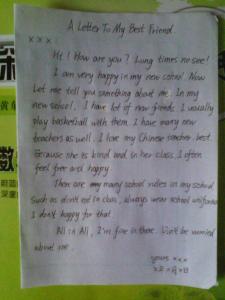 A Letter To My Best Friend
x x x :
Hi ! How are you ? Lung times no see!
I am very happy in my new school. Now
Let me tell you something about me. In my
new school. I have lot of new friends. I usually
play basketball with them. I have many new
teachers as well. I love my Chinese teacher best.
Because she is kind and in her class, I often
feel free and happy.
There are many school rules in my school
Such as don't eat in class, always wear school uniforms
I don't happy for that.
All in All, I'm fine in there. Don't be worried
about me.
yours xxx
深
黄
数